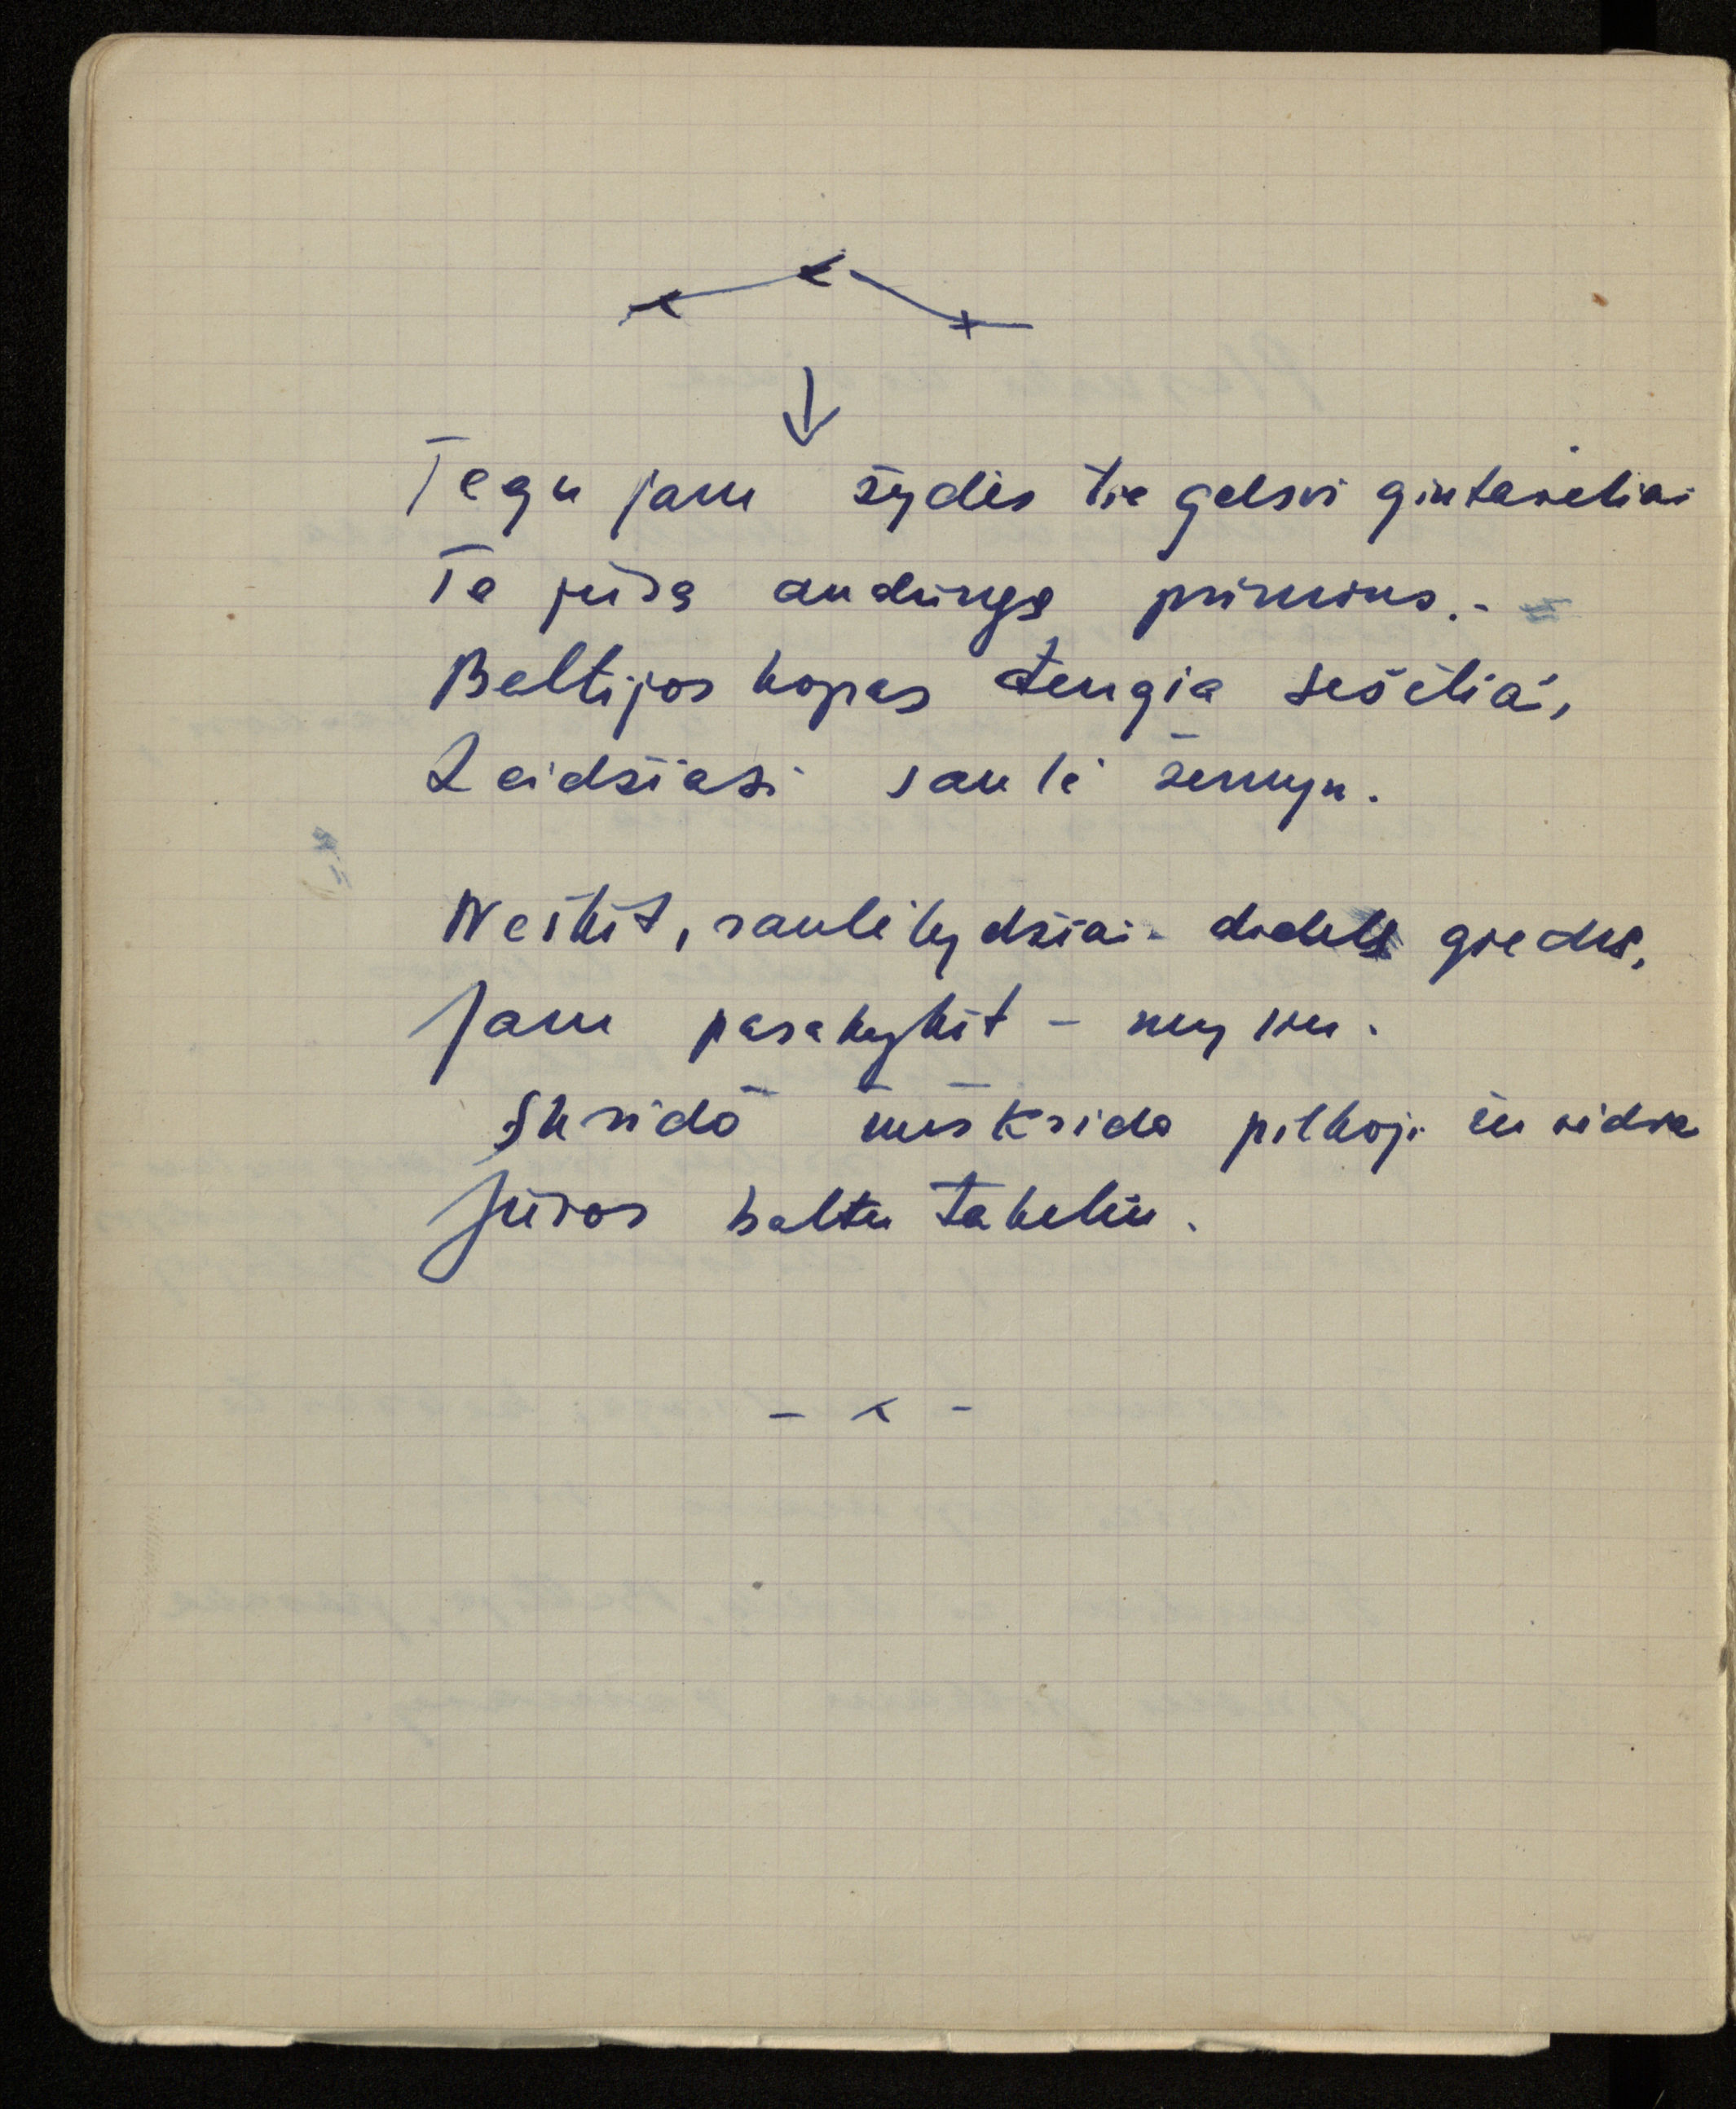 Tegu jam žydės tie gelsvi gintarėliai
Te jūrą audringą primins.-
Baltijos kopas dengia šešėliai,
Leidžiasi saulė žemyn.
Neškit, saulėlydžiai didelę giedrą,
Jam pasakykit – myliu.
Skrido nuskrido pilkoji žuvėdra
Jūros baltu takeliu.